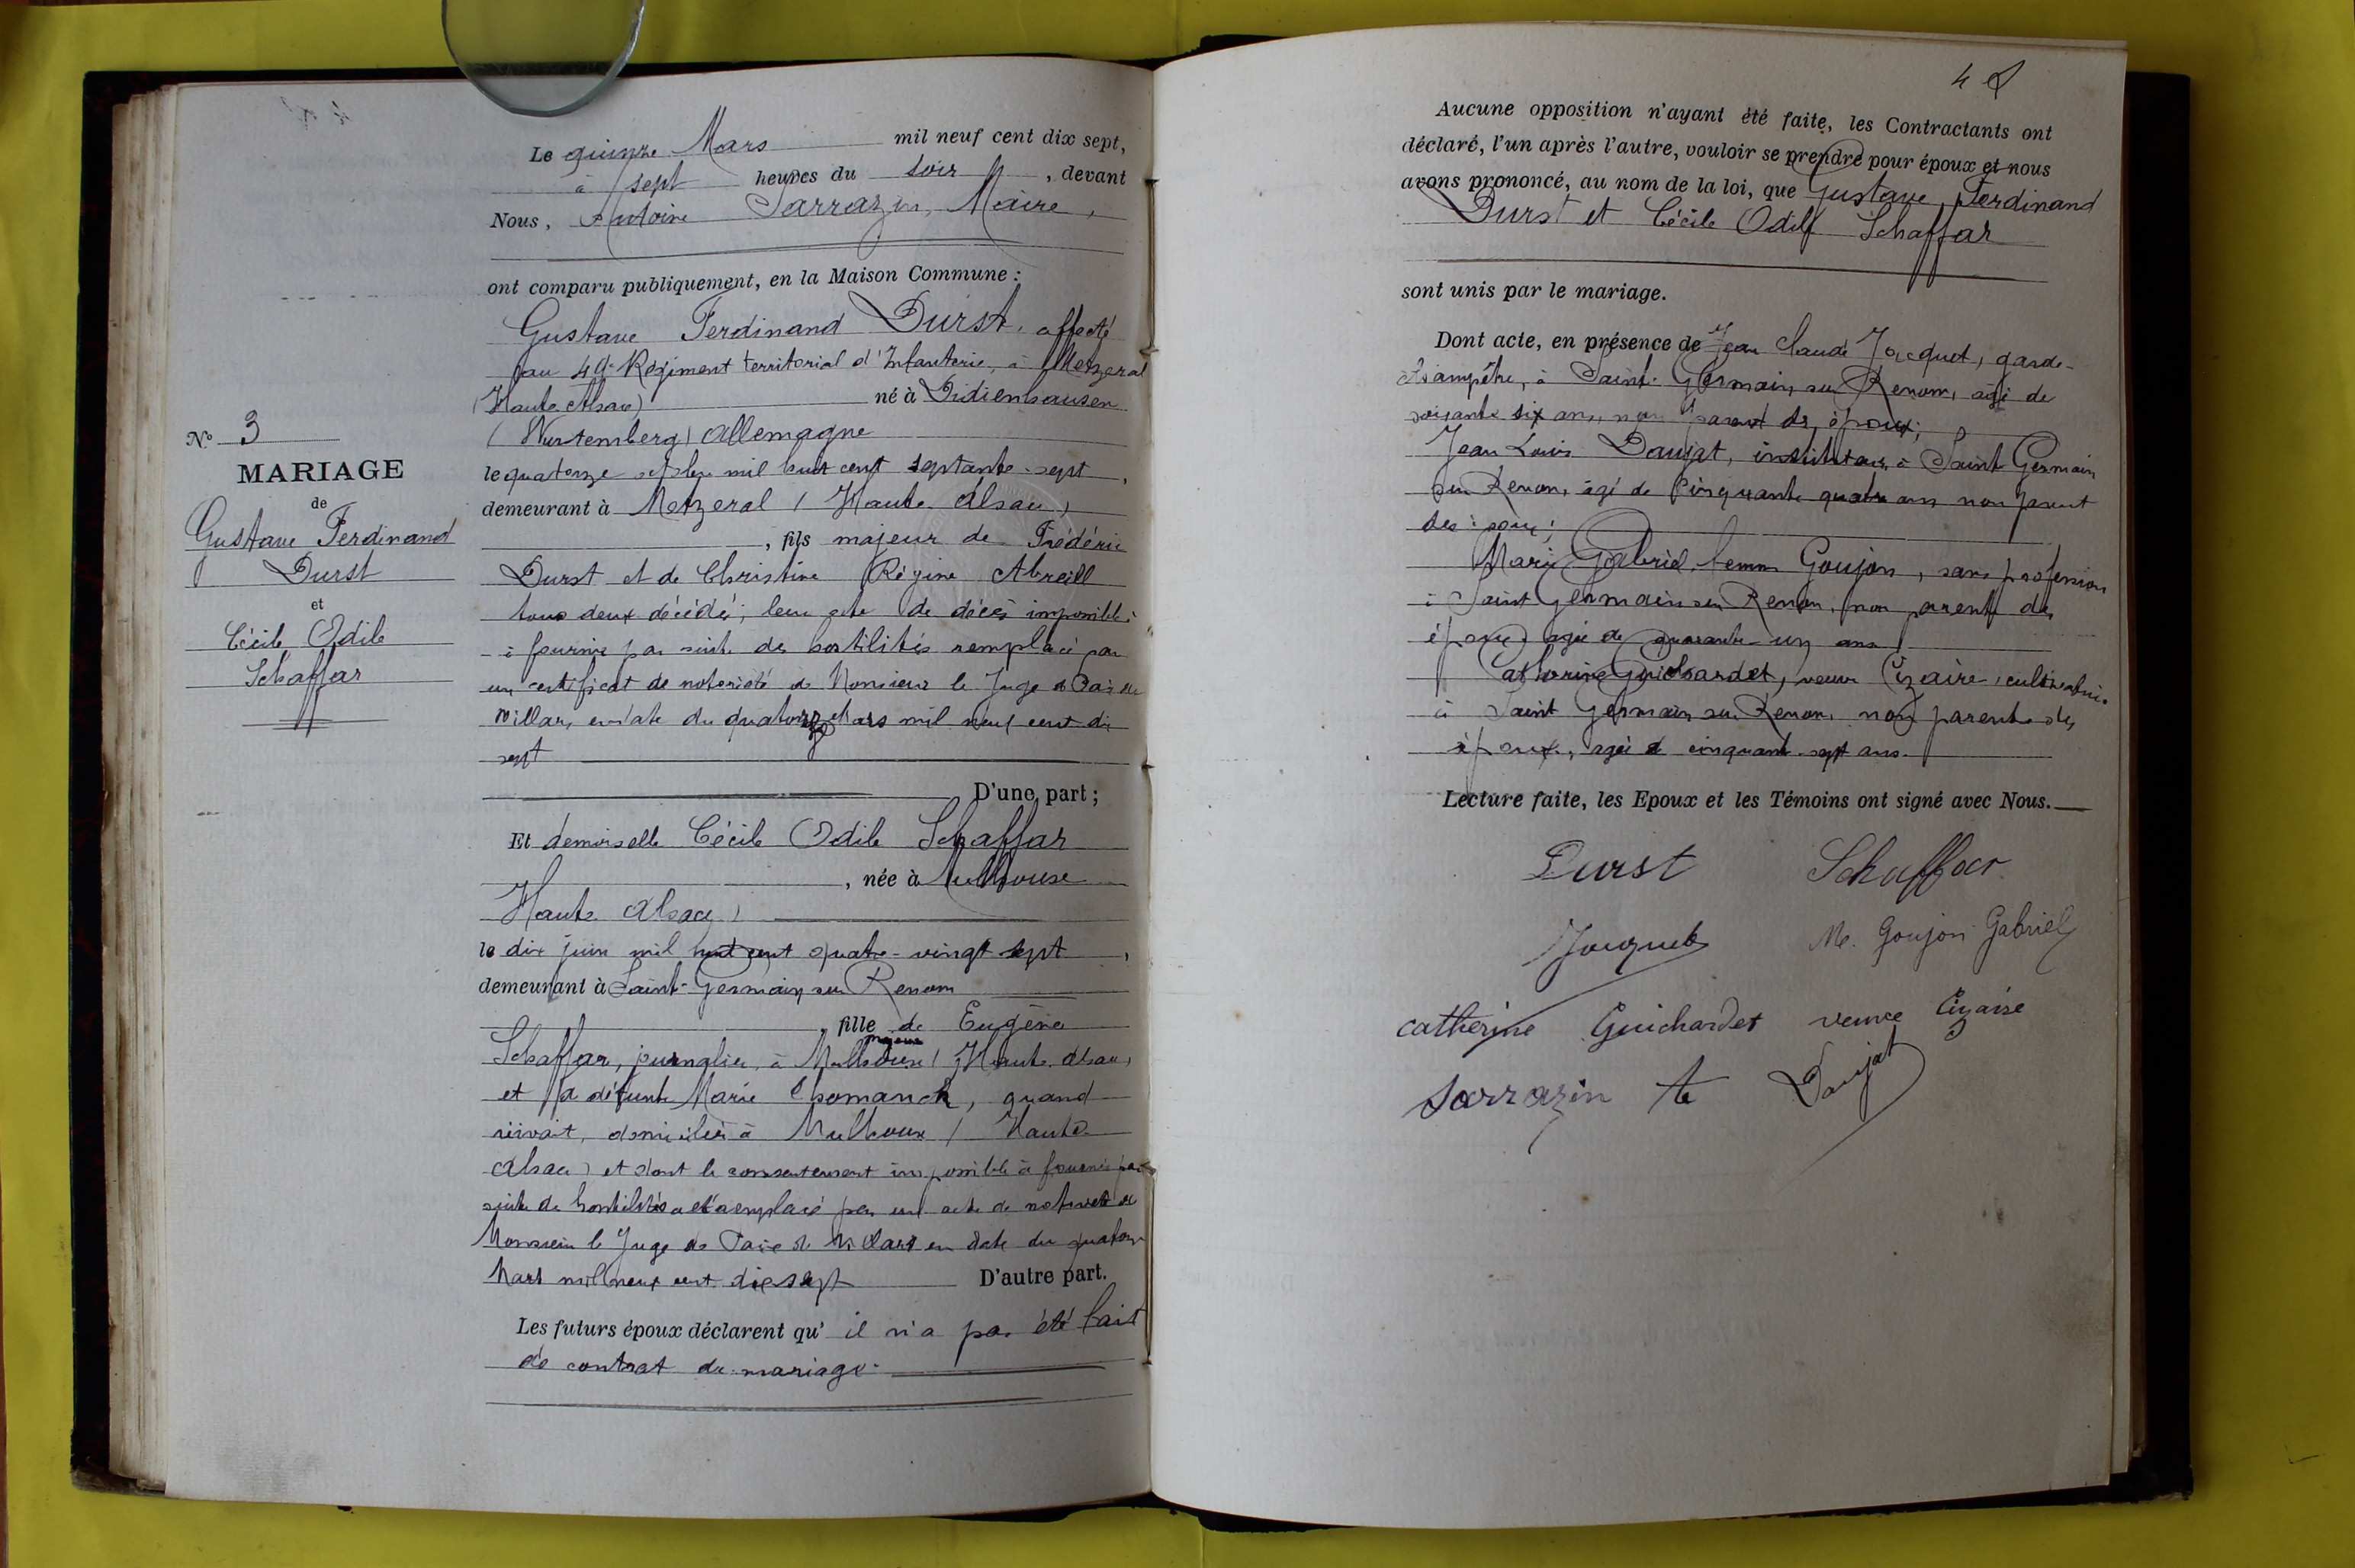 Le quinze Mars mil neuf cent dix sept,
à sept heures du soir, devant
Nous, Antoine Sarrazin, Maire,
ont comparu publiquement, en la Maison Commune :
Gustave Ferdinand Durst, affecté
au 49e Régiment territorial d'Infanterie, à Metzeral
(Haute Alsace) né à
(Wurtemberg) Allemagne
le quatorze mil huit cent septante-sept,
demeurant à Metzeral (Haute Alsace)
, fils majeur de Frédéric
Durst et de Christine Régine Abreill
tous deux décédés; leur acte de décès impossible
à fournir par suite des hostilités remplacé par
un certificat de notoriété de Monsieur le Juge de Paix de
Villars, en date du quatorze Mars mil neuf cent dix
sept
D'une part ;
Et demoiselle Cécile Odile Schaffar
, née à Mulhouse
Haute Alsace)
le dix juin mil huit cent quatre-vingt sept,
demeurant à Saint-Germain sur Renom
, fille de Eugène
majeure
Schaffar, journalier, à Mulhouse (Haute Alsace)
et de défunte Marie, quand
vivait, domiciliée à Mulhouse (Haute
Alsace) et dont le consentement impossible à fournir par
suite des hostilités a été remplacé par un acte de notoriété de
Monsieur le Juge de Paix de Villars en date du quatorze
Mars mil neuf cent dix sept D'autre part.
Les futurs époux déclarent qu'il n'a pas été fait
de contrat de mariage.
N° 3
MARIAGE
de
Gustave Ferdinand
Durst
et
Cécile Odile
Schaffar
4
Aucune opposition n'ayant été faite, les Contractants ont
déclaré, l'un après l'autre, vouloir se prendre pour époux et nous
avons prononcé, au nom de la loi, que Gustave Ferdinand
Durst et Cécile Odile Schaffar
sont unis par le mariage.
Dont acte, en présence de Jean Claude Jacquet, garde-
champêtre, à Saint-Germain sur Renom, âgé de
soixante six ans, non parent des époux;
Jean Louis Daujat, instituteur à Saint Germain
sur Renom, âgé de cinquante quatre ans non parent
des époux;
Marie Gabriel femme Goujon, sans profession
à Saint Germain sur Renom, non parente des
époux, agée de quarante-un ans
Catherine Guichardet, veuve Cizaire, cultivatrice
à Saint Germain sur Renom, non parente des
époux, agée de cinquante-sept ans.
Lecture faite, les Epoux et les Témoins ont signé avec Nous.
Durst Schaffar
Jacquet M. Goujon Gabriel
catherine Guichardet veuve Cizaire
Sarrazin Daujat